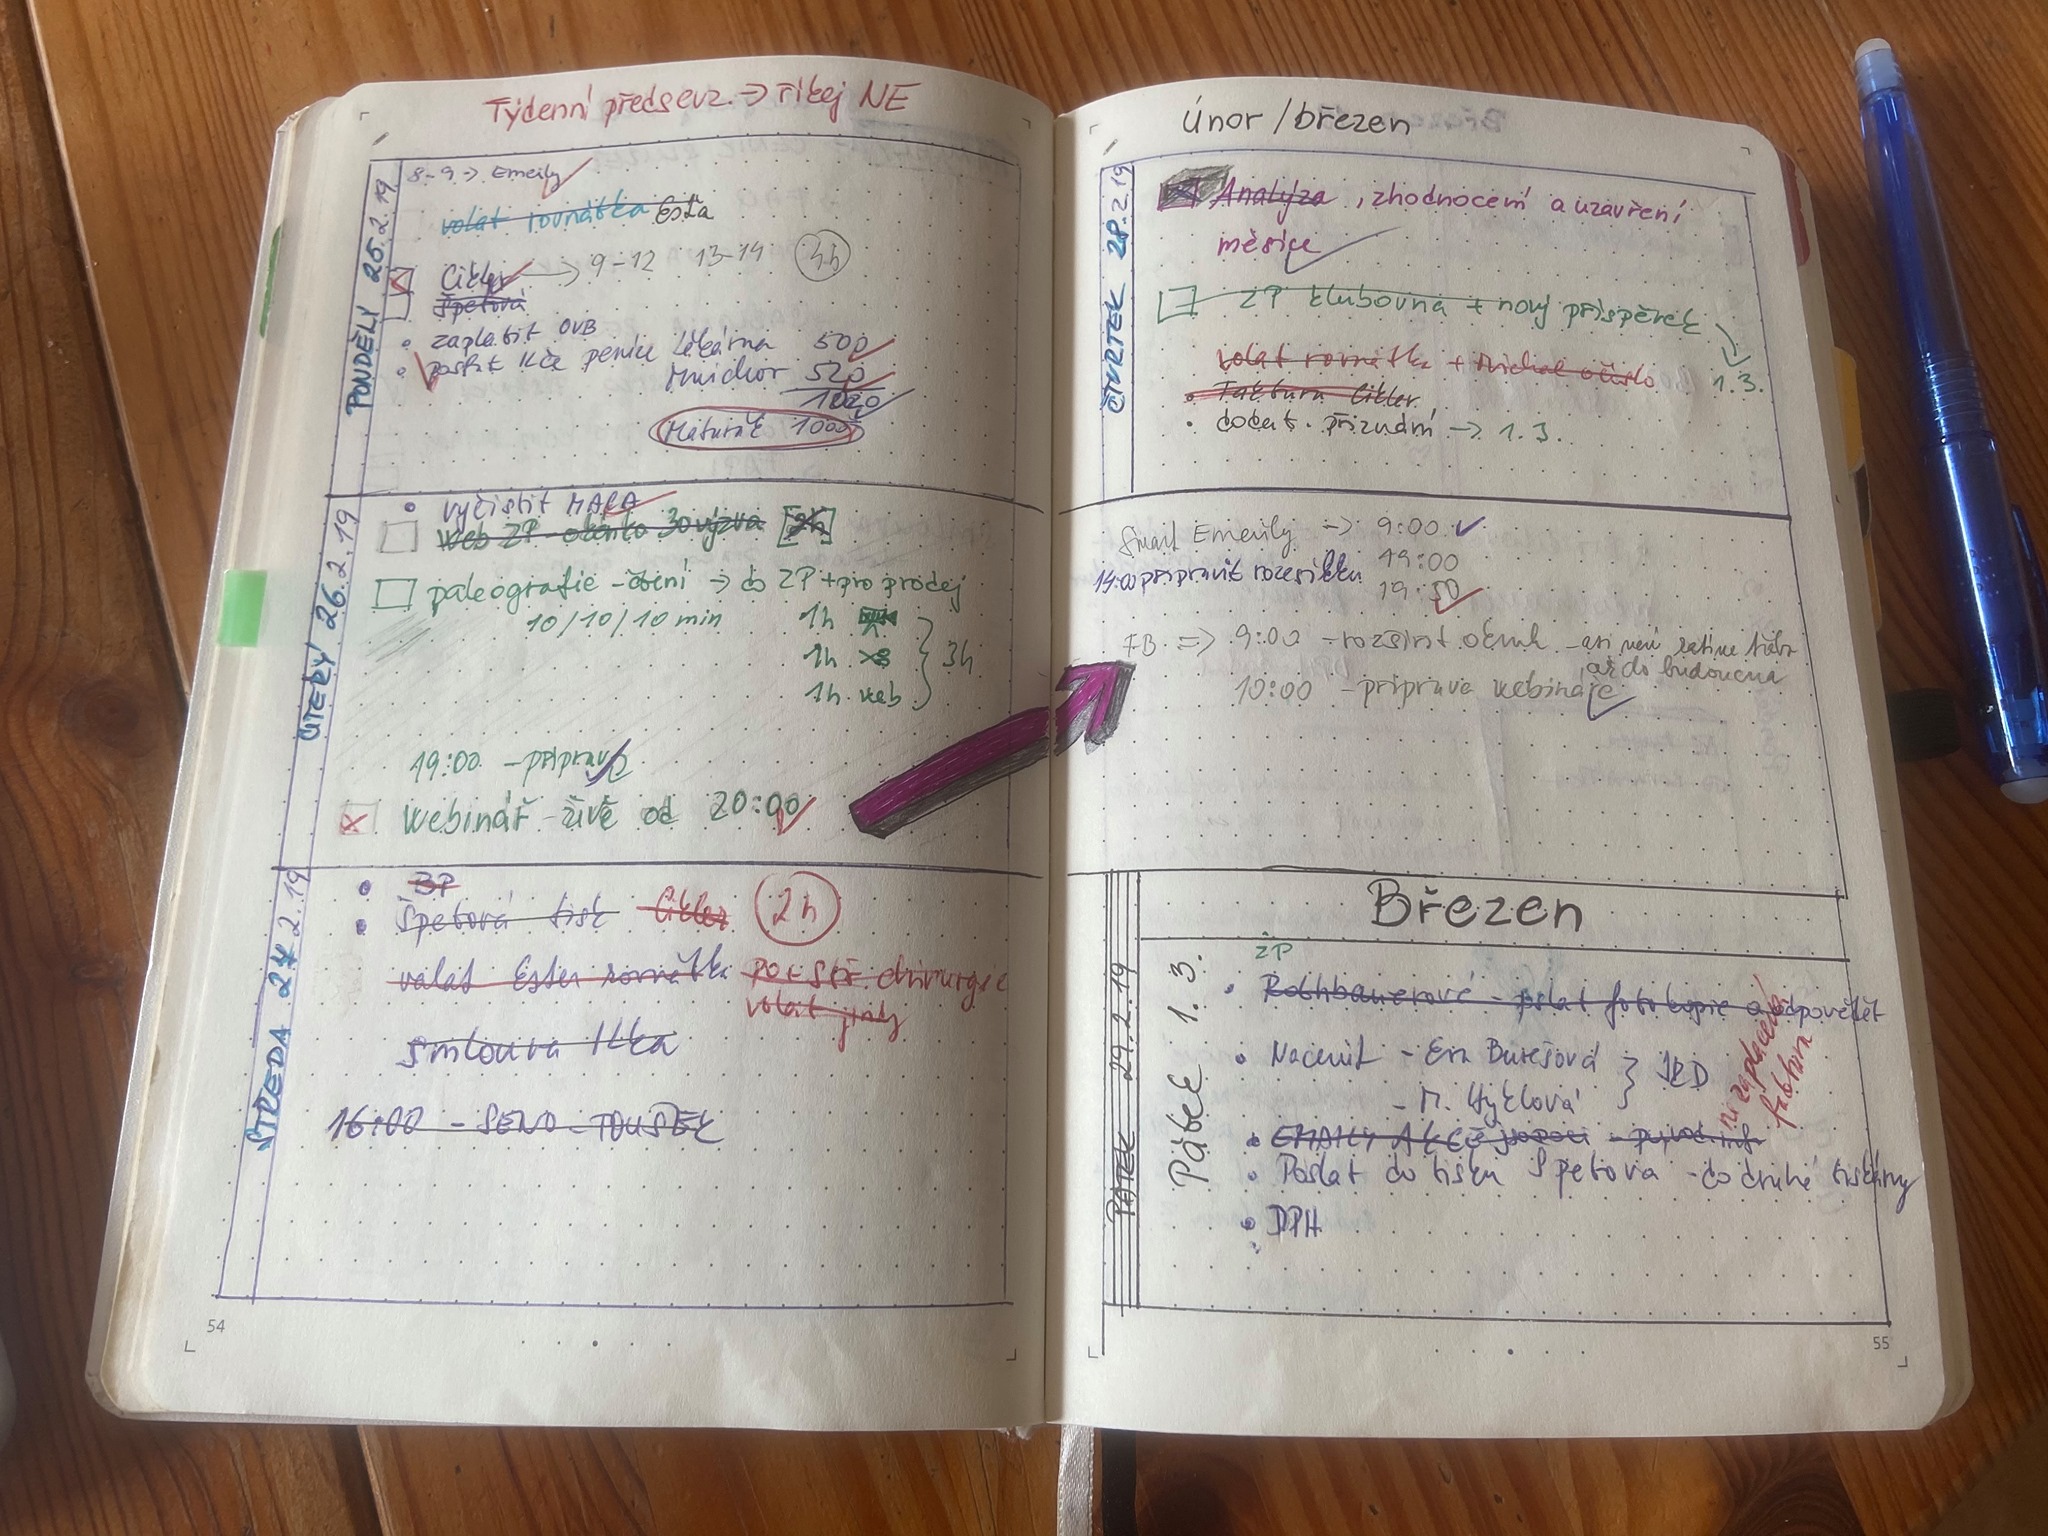 Týdenní předsevz. → říkej NE
PONDĚLÝ 25.2.19
8-9 → Emeily
volat rovnátka Esťa
Cikler → 9-12 13-14 4h
Špetová
• zaplatit OVB
• poslat Ilče peníze lékárna 500
520
1020
Maturák 1000
ÚTERÝ 26.2.19
• vyčistit MACA
Web ZP - okénko 30 výzva [2h]
paleografie - čtení → do ZP + pro prodej
10/10/10 min 1h
1h
1h web
3h
19:00 - příprava
Webinář - živě od 20:00
STŘEDA 27.2.19
• BP
• Špetová tisk Cikler 2h
volat Ester rovnátka
volat jindy
smlouva Ilka
16:00 - SENO - TOUŠEK
54
Únor / březen
ČTVRTEK 28.2.19
Analýza, zhodnocení a uzavření
měsíce
ZP klubovna + nový příspěvek
→ 1.3.
volat rovnátka + Michal očíslo
• Faktura Cikler
• dodat. přiznání → 1.3.
Smart Emeily → 9:00
14:00 připravit rozesílku 19:00
19:50
FB => 9:00 - rozšířit
až do budoucna
10:00 - příprava webináře
Březen
PÁTEK 29.2.19
Pátek 1.3.
ZP
• Rothbauerové - poslat fotokopie a odpovědět
• Nacenit - Eva Burešová
- M. Hyklová
nezaplacená
faktura
• EMAILY AKCE
• Poslat do tisku Špetova - do druhé tiskárny
• DPH
55